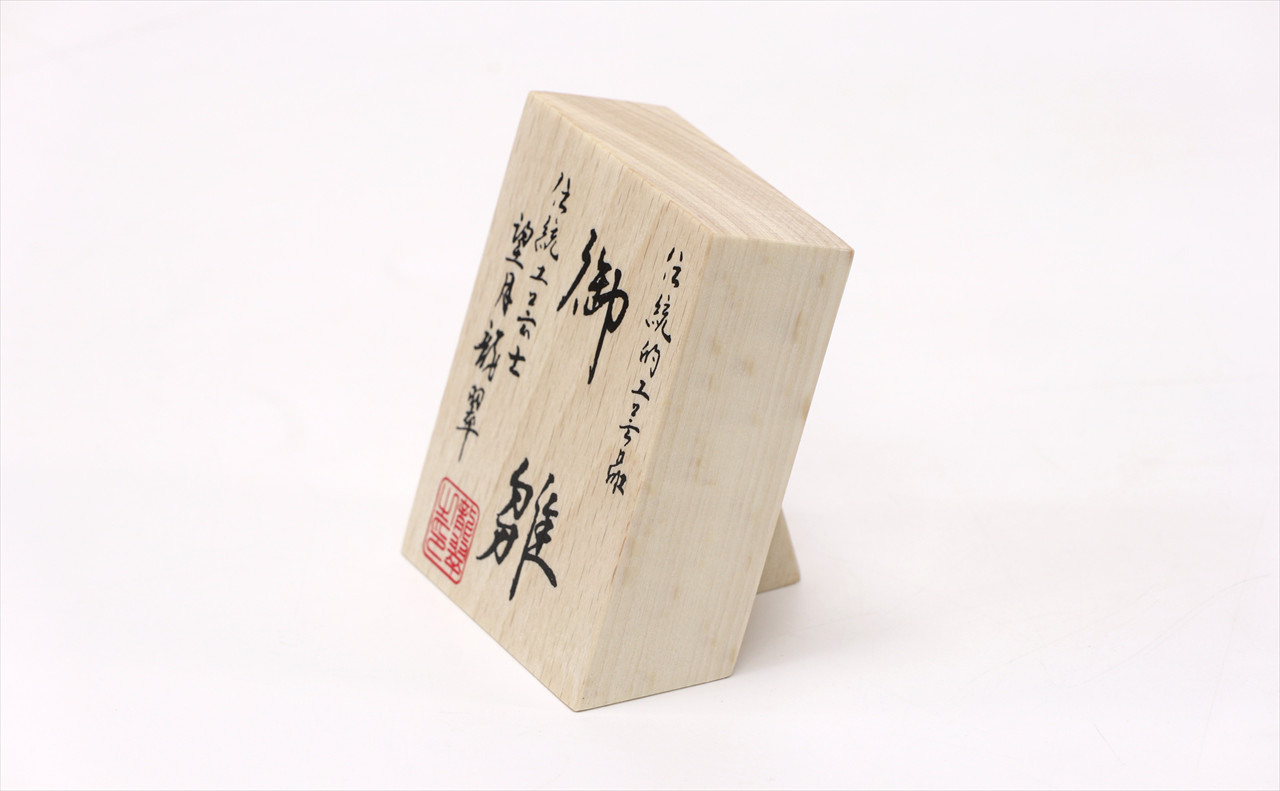 伝統的工芸品
御雛
伝統工芸士
望月龍翠